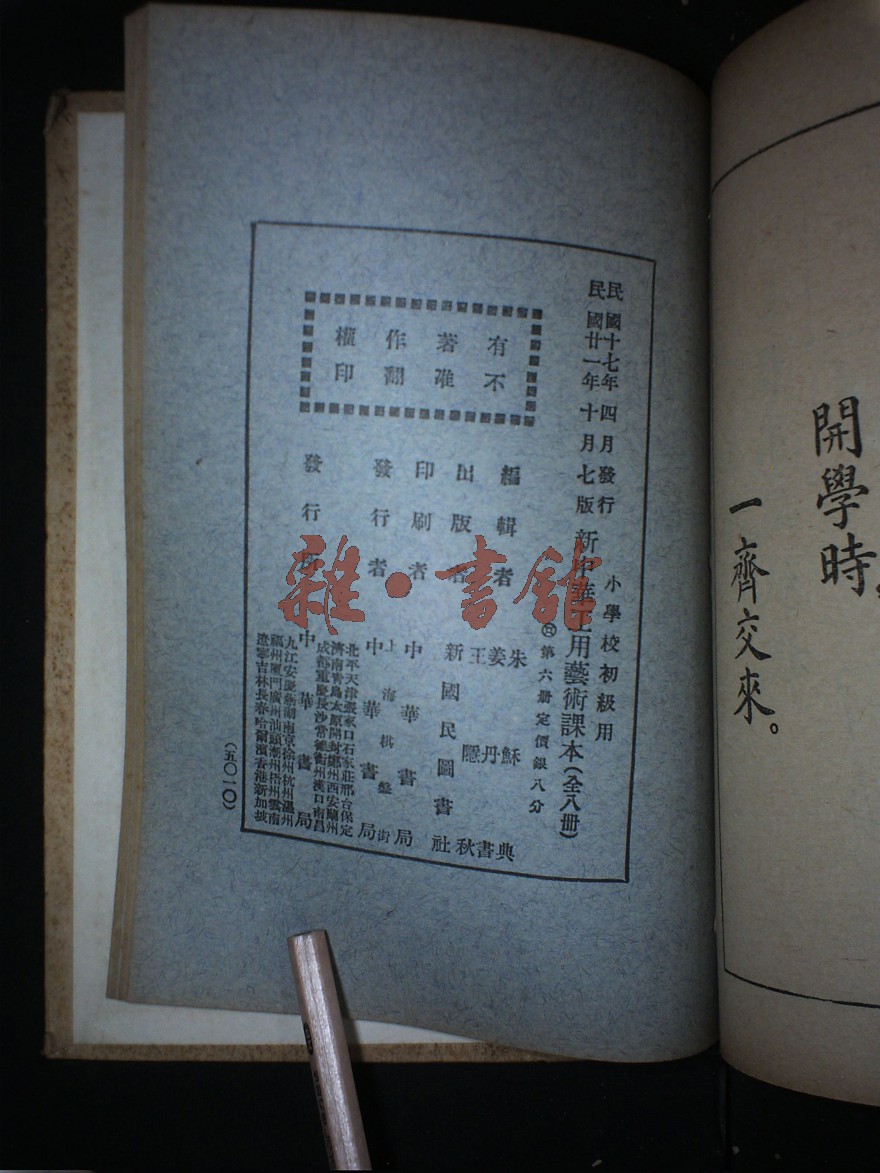 開學時，
一齊交來。
民國十七年四月發行
民國廿一年十月七版
小學校初級用
新中華工用藝術課本(全八冊)
第六册定價銀八分
有著作權
不准翻印
編輯者
朱穌典
姜丹書
王隱秋
出版者
新國民圖書社
印刷者
中華書局
上海棋盤街
發行者
中華書局
發行所
中華書局
北平天津張家口石家莊邢台保定
濟南青島太原開封鄭州西安蘭州
成都重慶長沙常德衡州漢口南昌
九江安慶蕪湖南京徐州杭州溫州
福州厦門廣州汕頭潮州梧州雲南
遼寧吉林長春哈爾濱香港新加坡
(五〇一〇)
雜·書館